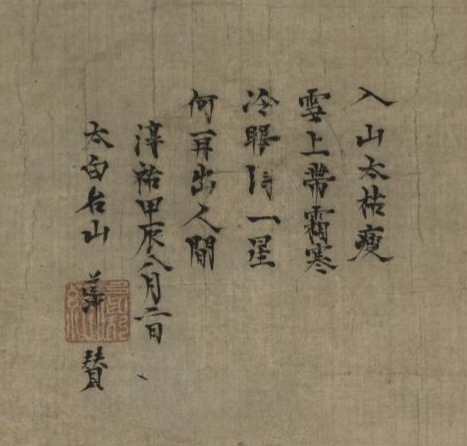 入山太枯瘦
雪上帶霜寒
冷眼得一星
何再出人間
淳祐甲辰八月二日
太白名山 贊